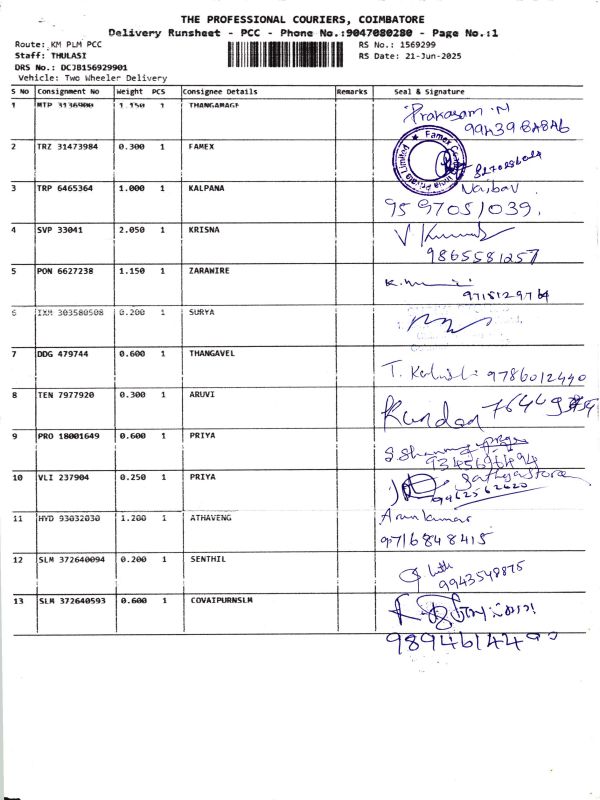 THE PROFESSIONAL COURIERS, COIMBATORE
Delivery Runsheet - PCC - Phone No.:9047080280 - Page No.:1
Route: KM PLM PCC
RS No.: 1569299
Staff: THULASI
RS Date: 21-Jun-2025
DRS No.: DCJB156929901
Vehicle: Two Wheeler Delivery
S No Consignment No Weight PCS Consignee Details Remarks Seal & Signature
1 MTP 3136900 1.150 1 THANGAMAGE Prakasam .N
99439 8A8A6
2 TRZ 31473984 0.300 1 FAMEX
3 TRP 6465364 1.000 1 KALPANA
95 97051039.
4 SVP 33041 2.050 1 KRISNA V Kumar
9865581257
5 PON 6627238 1.150 1 ZARAWIRE
9715129764
6 IXM 303580508 0.200 1 SURYA
7 DDG 479744 0.600 1 THANGAVEL T.
9786012440
8 TEN 7977920 0.300 1 ARUVI Kundan
9 PRO 18001649 0.600 1 PRIYA
10 VLI 237904 0.250 1 PRIYA
9962562620
11 HYD 93032030 1.200 1 ATHAVENG Arunkumar
9716848415
12 SLM 372640094 0.200 1 SENTHIL
9943548875
13 SLM 372640593 0.600 1 COVAIPURNSLM